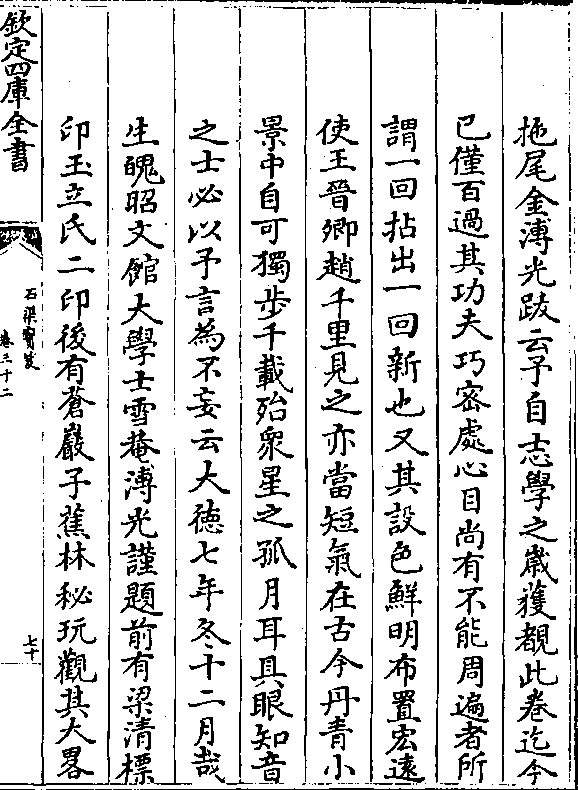 拖尾金溥光跋云予自志學之歲獲覩此卷迄今
已僅百過其功夫巧密處心目尚有不能周遍者所
謂一回拈出一回新也又其設色鮮明布置宏遠
使王晉卿趙千里見之亦當短氣在古今丹青小
景中自可獨步千載殆衆星之孤月耳具眼知音
之士必以予言為不妄云大徳七年冬十二月哉
生魄昭文館大學士雪菴溥光謹題前有梁清標
印玉立氏二印後有蒼巖子蕉林秘玩觀其大畧
欽定四庫全書
石渠寳笈
卷三十二
七十